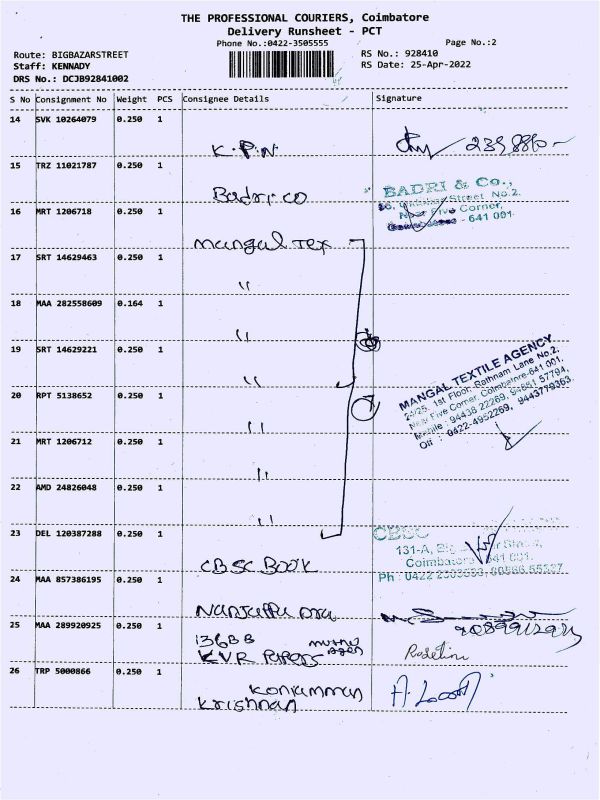 THE PROFESSIONAL COURIERS, Coimbatore
Delivery Runsheet - PCT
Phone No.:0422-3505555
Page No.:2
Route: BIGBAZARSTREET
RS No.: 928410
Staff: KENNADY
RS Date: 25-Apr-2022
DRS No.: DCJB92841002
S No Consignment No Weight PCS Consignee Details Signature
14 SVK 10264079 0.250 1
K.P.N
15 TRZ 11021787 0.250 1
Badri co
BADRI & Co.,
Street, No.2,
Five Corner,
- 641 001.
16 MRT 1206718 0.250 1
Mangal Tex
17 SRT 14629463 0.250 1
"
18 MAA 282558609 0.164 1
"
19 SRT 14629221 0.250 1
"
MANGAL TEXTILE AGENCY
24/25, 1st Floor, Rathnam Lane No.2,
Near Five Corner, Coimbatore-641 001.
Mobile : 94438 22269, 94851 57794,
Off : 0422-4952269, 9443779363
20 RPT 5138652 0.250 1
"
21 MRT 1206712 0.250 1
"
22 AMD 24826048 0.250 1
"
23 DEL 120387288 0.250 1
CBSC Book
CBSC
131-A, Big
Coimbatore 641 001.
Ph : 0422
24 MAA 857386195 0.250 1
25 MAA 289920925 0.250 1
136BB
KVR Papers
26 TRP 5000866 0.250 1
Koniamman
Krishnan